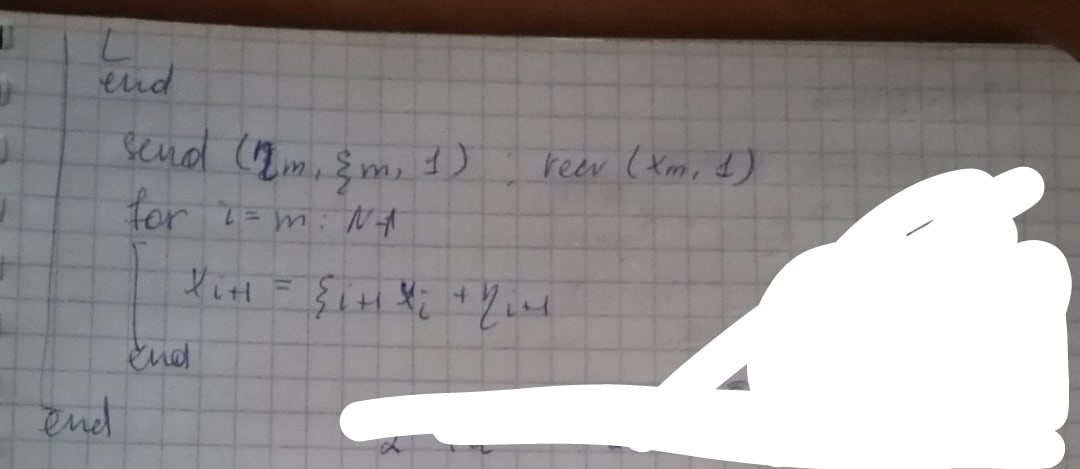 end
send (η_m, ξ_m, 1) ; recv (x_m, 1)
for i = m : N-1
x_{i+1} = ξ_{i+1} x_i + η_{i+1}
end
end